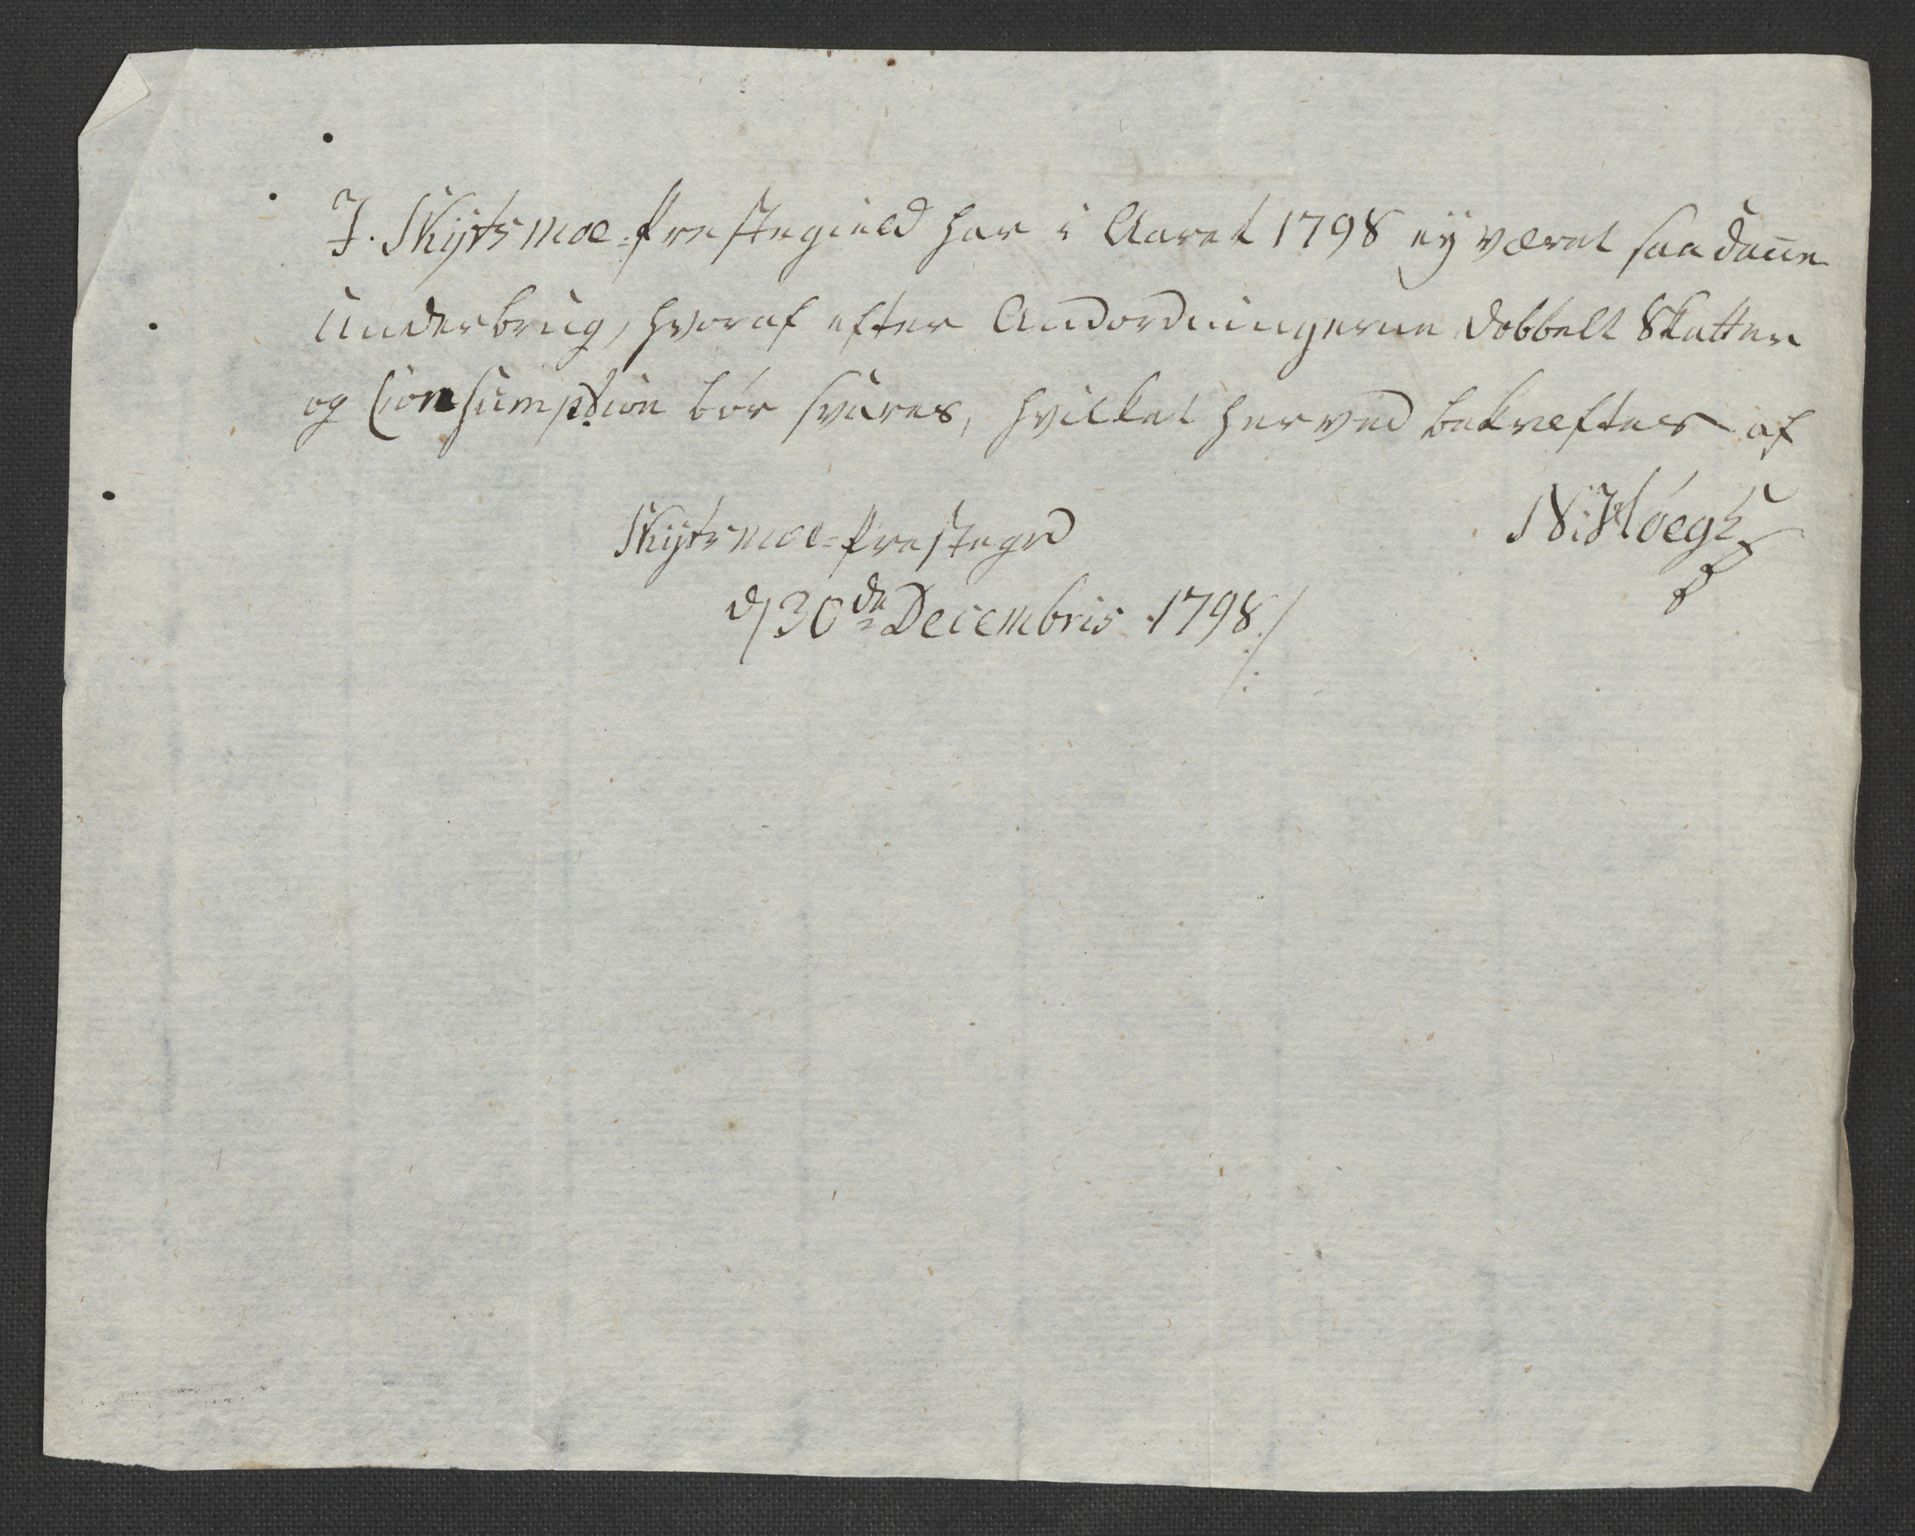 I. Skijtsmoe-Prestegield har i Aaret 1798 ey været saadane
Underbrug, hvoraf efter Andordningerne dobbelt Skatter
og Consumption bør svares, hvilket herved bekræftes af
Skijtsmoe-Prestegrd
d/ 30de Decembris 1798./
N: Høegh